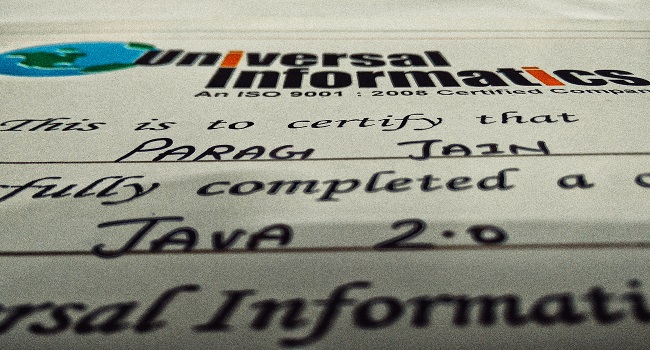 Universal
Informatics
An ISO 9001 : 2008 Certified Company
This is to certify that
PARAG JAIN
sfully completed a c
JAVA 2.0
rsal Informati